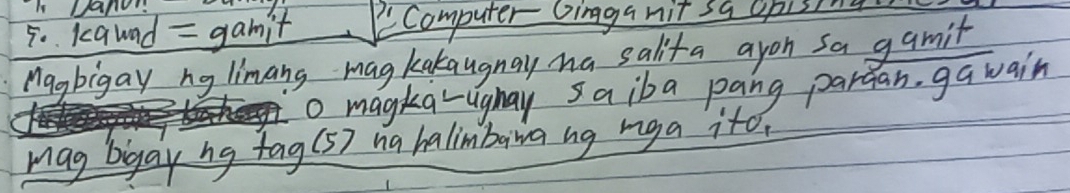 5. kawad = gamit
Computer - Ginagamit sa
Magbigay ng limang magkakaugnay na salita ayon sa gamit
o magka-ugnay sa iba pang paraan. gawain
mag bigay ng tag (5) na halimbawa ng mga ito.